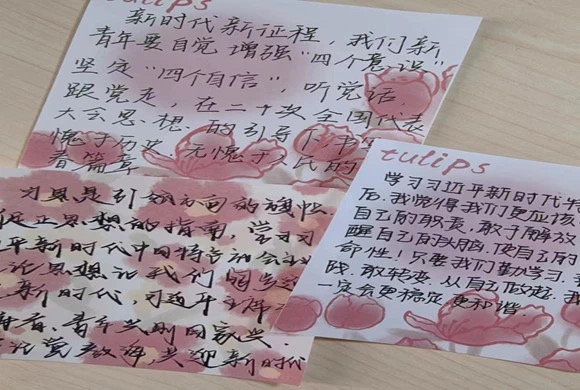 tulips
新时代新征程，我们新
青年要自觉增强“四个意识”
坚定“四个自信”，听党话，
跟党走，在二十次全国代表
大会思想的引导下，书
愧于历史，无愧于人民的
春篇章
力思是引领方向的旗帜
正思想的指南，学习习
平新时代中国特色社会主
论思想让我们
新时代，习近平主席
青春，青年兴则国家兴
党教诲，共迎新时代
tulips
学习习近平新时代中特
后，我觉得我们更应该
自己的职责，敢于解放
醒自己的头脑，使自己的
命性！只要我们勤学习，
践，敢转变，从自己做起，我
一定会更稳定，更和谐.